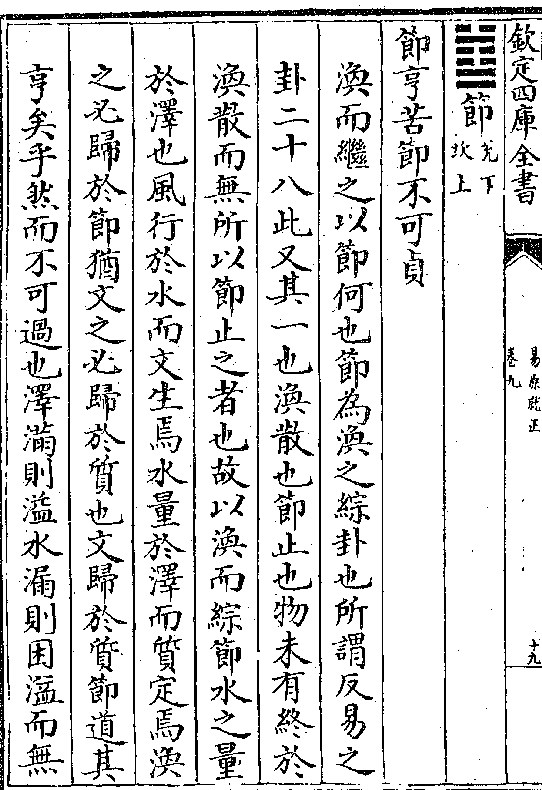 欽定四庫全書
易原就正
卷九
十九
䷻節兌下坎上
節亨苦節不可貞
渙而繼之以節何也節為渙之綜卦也所謂反易之
卦二十八此又其一也渙散也節止也物未有終於
渙散而無所以節止之者也故以渙而綜節水之量
於澤也風行於水而文生焉水量於澤而質定焉渙
之必歸於節猶文之必歸於質也文歸於質節道其
亨矣乎然而不可過也澤滿則溢水漏則困溢而無